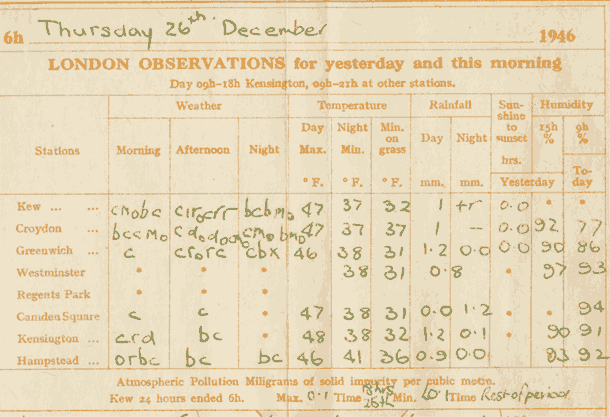 6h Thursday 26th December 1946
LONDON OBSERVATIONS for yesterday and this morning
Day 09h-18h Kensington, 09h-21h at other stations.
Weather Temperature Rainfall Sun-shine to sunset Humidity
Stations Morning Afternoon Night Day Max. Night Min. Min. on grass Day Night hrs. 15h % 9h %
° F. ° F. ° F. mm. mm. Yesterday To-day
Kew ... ... 47 37 32 1 tr 0.0 • •
Croydon ... 47 37 37 1 — 0.0 92 77
Greenwich ... c cbx 46 38 31 1.2 0.0 0.0 90 86
Westminster • • • 38 31 0.8 • 97 93
Regents Park • • •
Camden Square c c • 47 38 31 0.0 1.2 • • 94
Kensington ... crd bc • 48 38 32 1.2 0.1 • 90 91
Hampstead ... orbc bc bc 46 41 36 0.9 0.0 83 92
Atmospheric Pollution Miligrams of solid impurity per cubic metre.
Kew 24 hours ended 6h. Max. 0.1 Time 26th Min. Time Rest of period